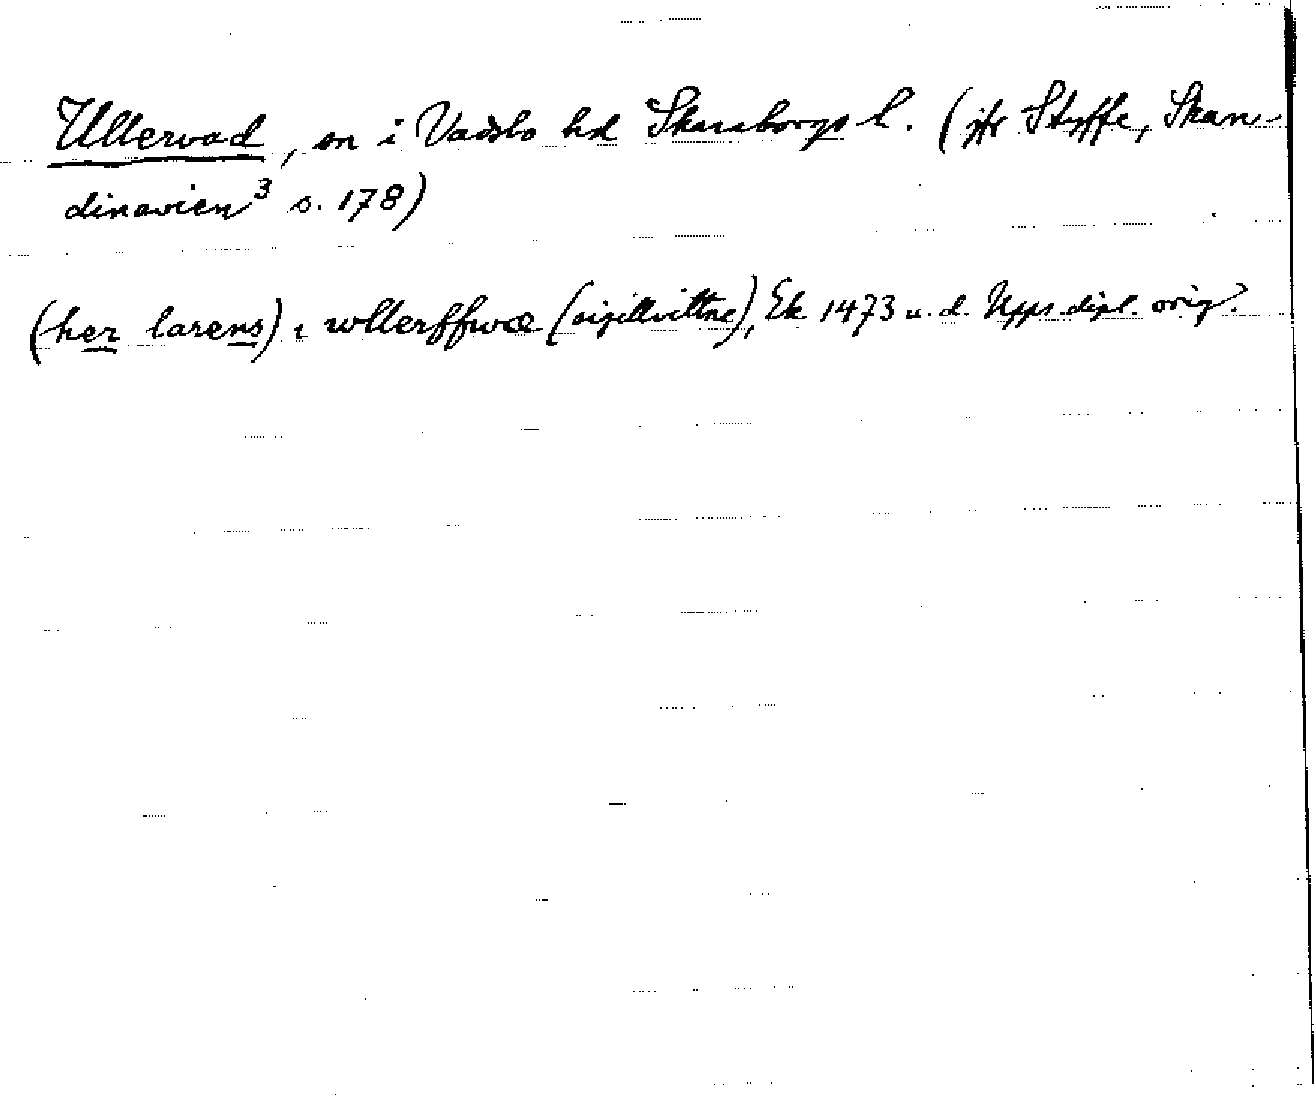 Ullervad, sn i Vadsbo hd Skaraborgs l. (jfr Styffe, Skan-
dinavien³ s. 178)
(her larens) i wllerffwæ (sigillvittne), Ek 1473 u. d. Upps. dipl. orig.